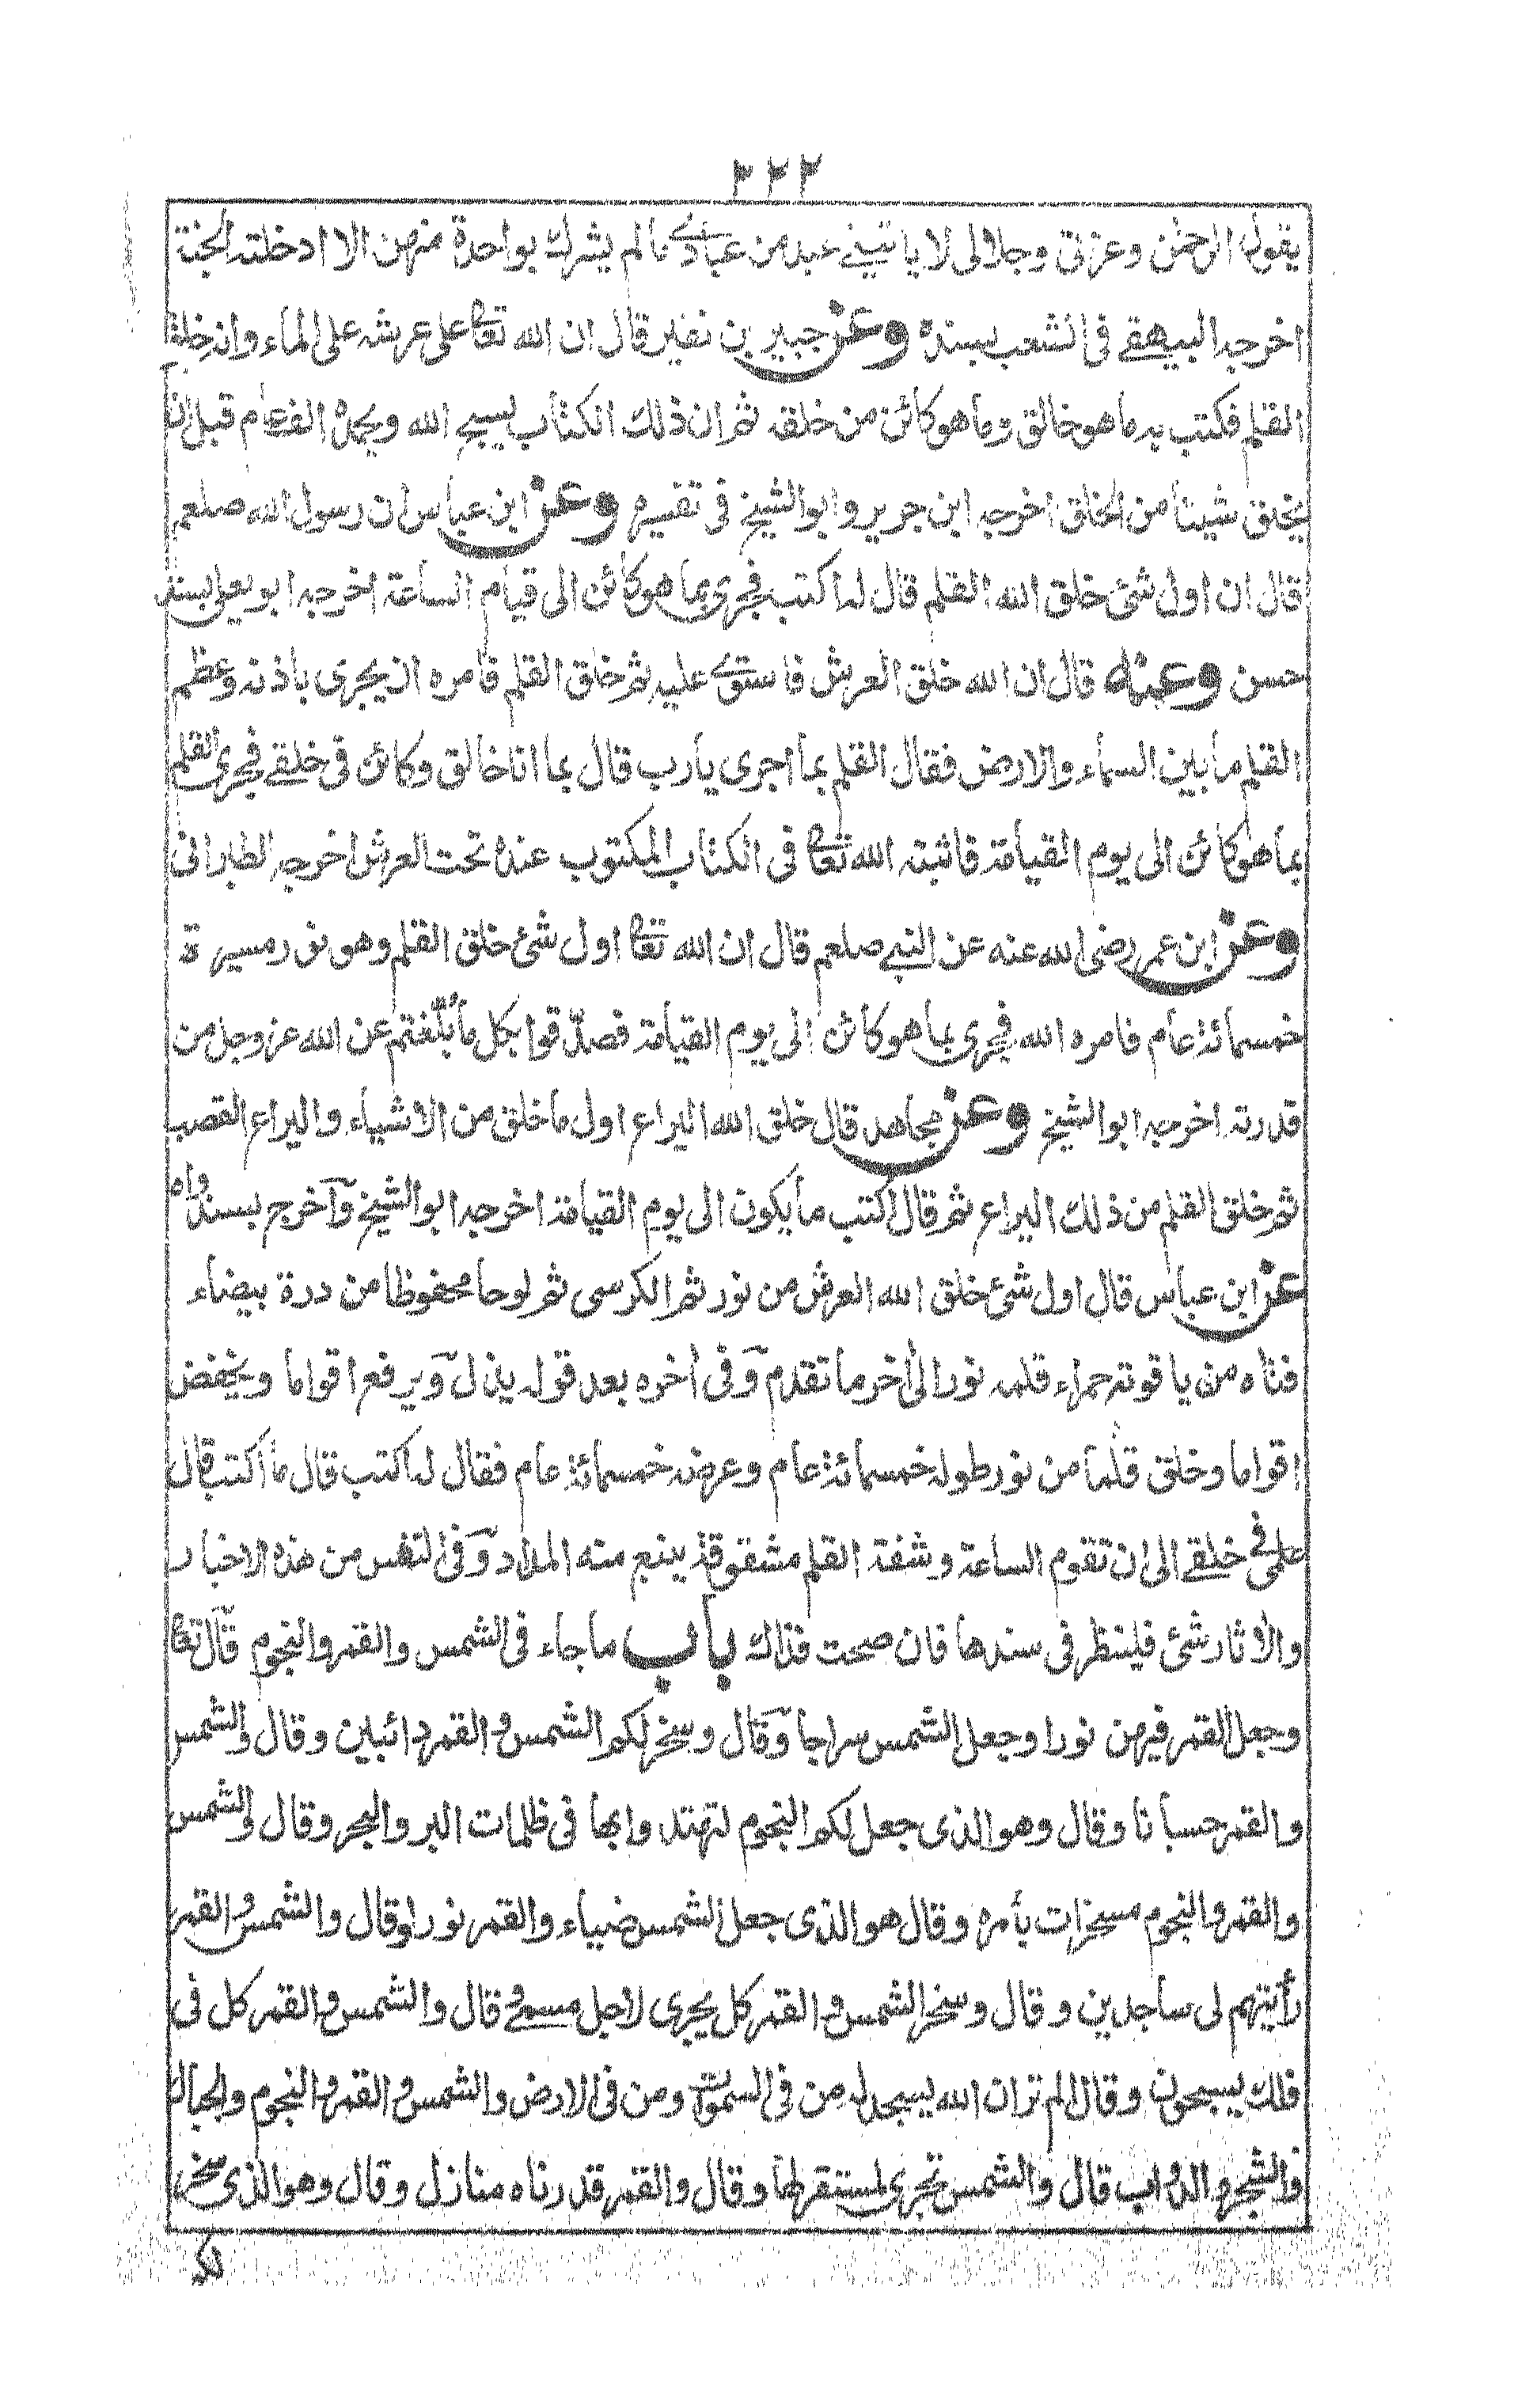 ٣٢٢
يقول الرحمن وعزتى وجلالى لا ياتينى عبد من عبادى ما لم يشرك بواحدة منهن الا ادخلته الجنة
اخرجه البيهقى فى الشعب بسنده وعن جبير بن نفير قال ان الله تعالى على عرشه على الماء وانه خلق
القلم فكتب به ما هو خالق وما هو كائن من خلقه ثم ان ذلك الكتاب يسبح الله ويمجده الف عام قبل ان
يخلق شيئا من الخلق اخرجه ابن جرير وابو الشيخ فى تفسيره وعن ابن عباس ان رسول الله صلعم
قال ان اول شئ خلق الله القلم قال له اكتب فجرى بما هو كائن الى قيام الساعة اخرجه ابو يعلى بسند
حسن وعنه قال ان الله خلق العرش فاستوى عليه ثم خلق القلم فامره ان يجرى باذنه وعظم
القلم ما بين السماء والارض فقال القلم بما اجرى يارب قال بما انا خالق وكائن فى خلقى فجرى القلم
بما هو كائن الى يوم القيامة فاثبته الله تعالى فى الكتاب المكتوب عنده تحت العرش اخرجه الطبرانى
وعن ابن عمر رضى الله عنه عن النبى صلعم قال ان الله تعالى اول شئ خلق القلم وهو نور مسيرة
خمسمائة عام فامره الله فجرى بما هو كائن الى يوم القيامة فصدّقوا بكل ما بُلّغتم عن الله عز وجل من
قدرته اخرجه ابو الشيخ وعن مجاهد قال خلق الله اليراع اول ما خلق من الاشياء واليراع القصب
ثم خلق القلم من ذلك اليراع ثم قال اكتب ما يكون الى يوم القيامة اخرجه ابو الشيخ وآخرج بسند واه
عن ابن عباس قال اول شئ خلق الله العرش من نور ثم الكرسى ثم لوحا محفوظا من درة بيضاء
فتاه من ياقوتة حمراء قلمه نور الى آخر ما تقدم وفى آخره بعد قوله يذل ويرفع اقواما ويخفض
اقواما وخلق قلما من نور طوله خمسمائة عام وعرضه خمسمائة عام فقال له اكتب قال ما اكتب قال
علمى فى خلقى الى ان تقوم الساعة وشفة القلم مشقوقة ينبع منه المداد وفى النفس من هذه الاخبار
والآثار شئ فلينظر فى سندها فان صحت فذاك باب ما جاء فى الشمس والقمر والنجوم قال تعالى
وجعل القمر فيهن نورا وجعل الشمس سراجا وقال وسخر لكم الشمس والقمر دائبين وقال والشمس
والقمر حسبانا وقال وهو الذى جعل لكم النجوم لتهتدوا بها فى ظلمات البر والبحر وقال والشمس
والقمر والنجوم مسخرات بأمره وقال هو الذى جعل الشمس ضياء والقمر نورا وقال والشمس والقمر
رأيتهم لى ساجدين وقال وسخر الشمس والقمر كل يجرى لاجل مسمى وقال والشمس والقمر كل فى
فلك يسبحون وقال الم تر ان الله يسجد له من فى السموات ومن فى الارض والشمس والقمر والنجوم والجبال
والشجر والدواب قال والشمس تجرى لمستقر لها وقال والقمر قدرناه منازل وقال وهو الذى سخر
لكم